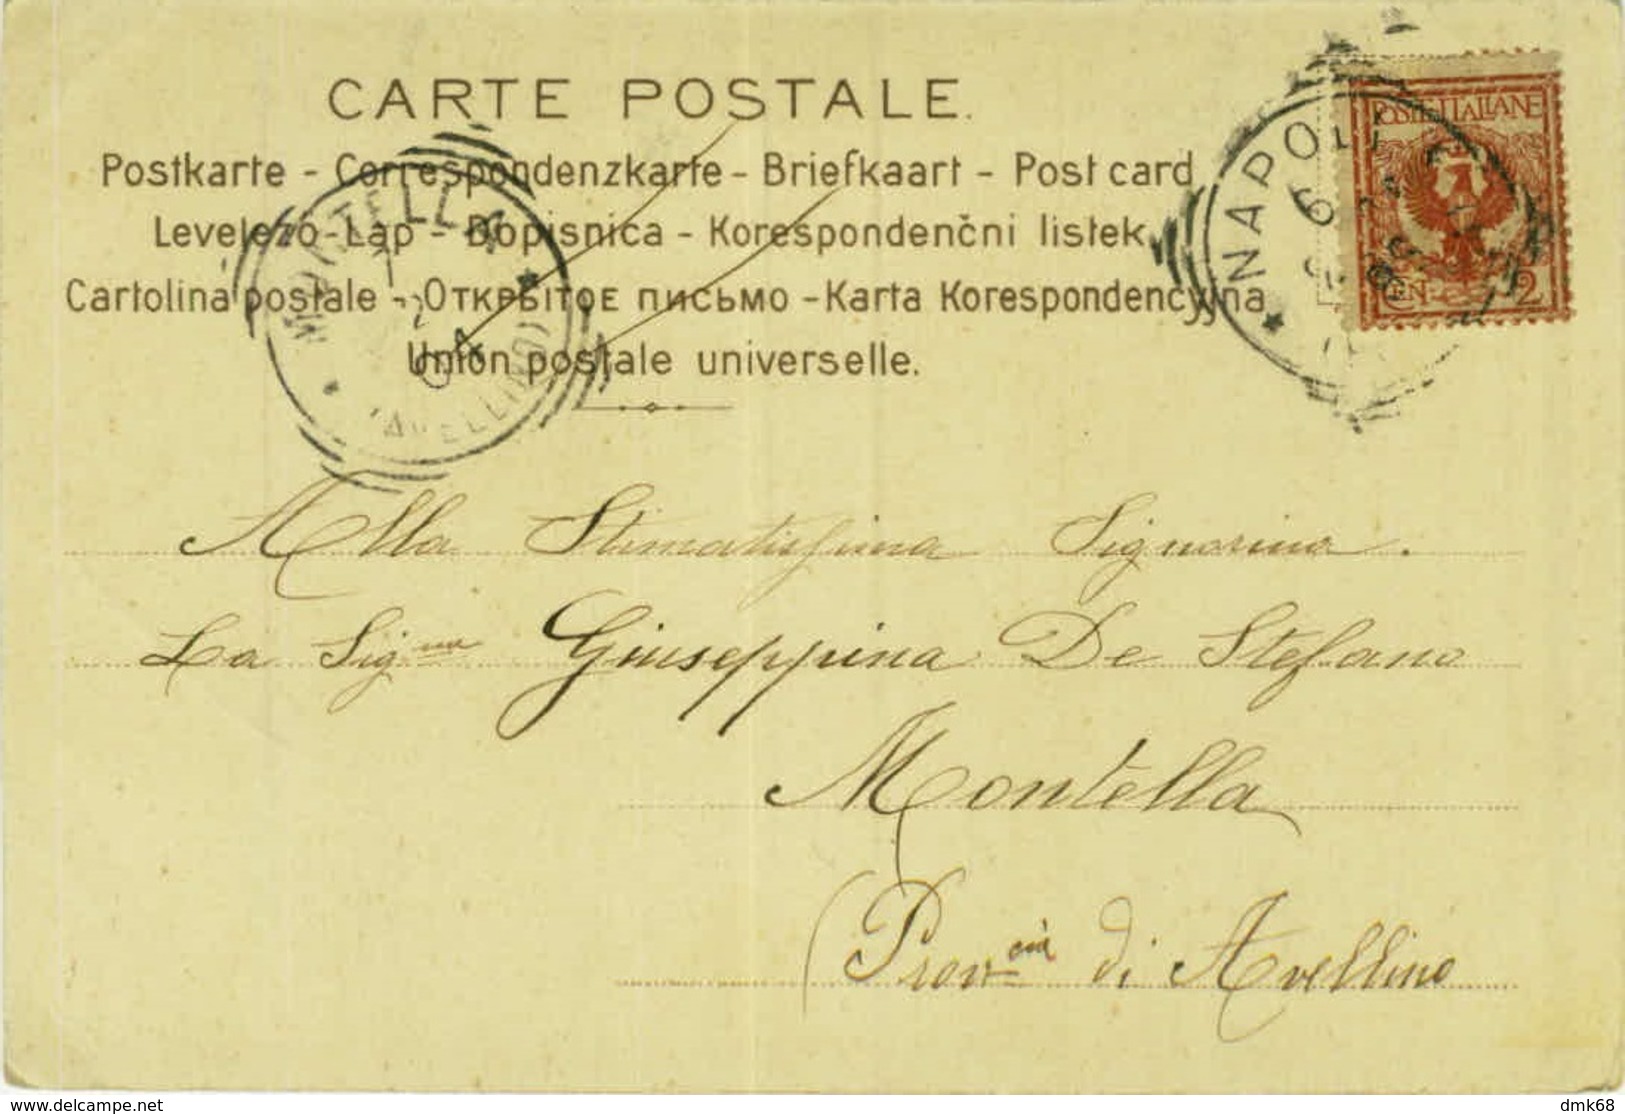 CARTE POSTALE.
Postkarte - Correspondenzkarte - Briefkaart - Post card
Levelező-Lap - Dopisnica - Korespondenčni listek,
Cartolina postale - Открытое письмо - Karta Korespondencyjna
Union postale universelle.
NAPOLI
POSTE ITALIANE
CEN 2
MONTELLA
(AVELLINO)
Alla Stimatissima Signorina.
La Signa Giuseppina De Stefano
Montella
(Provcia di Avellino
delcampe.net
dmk68